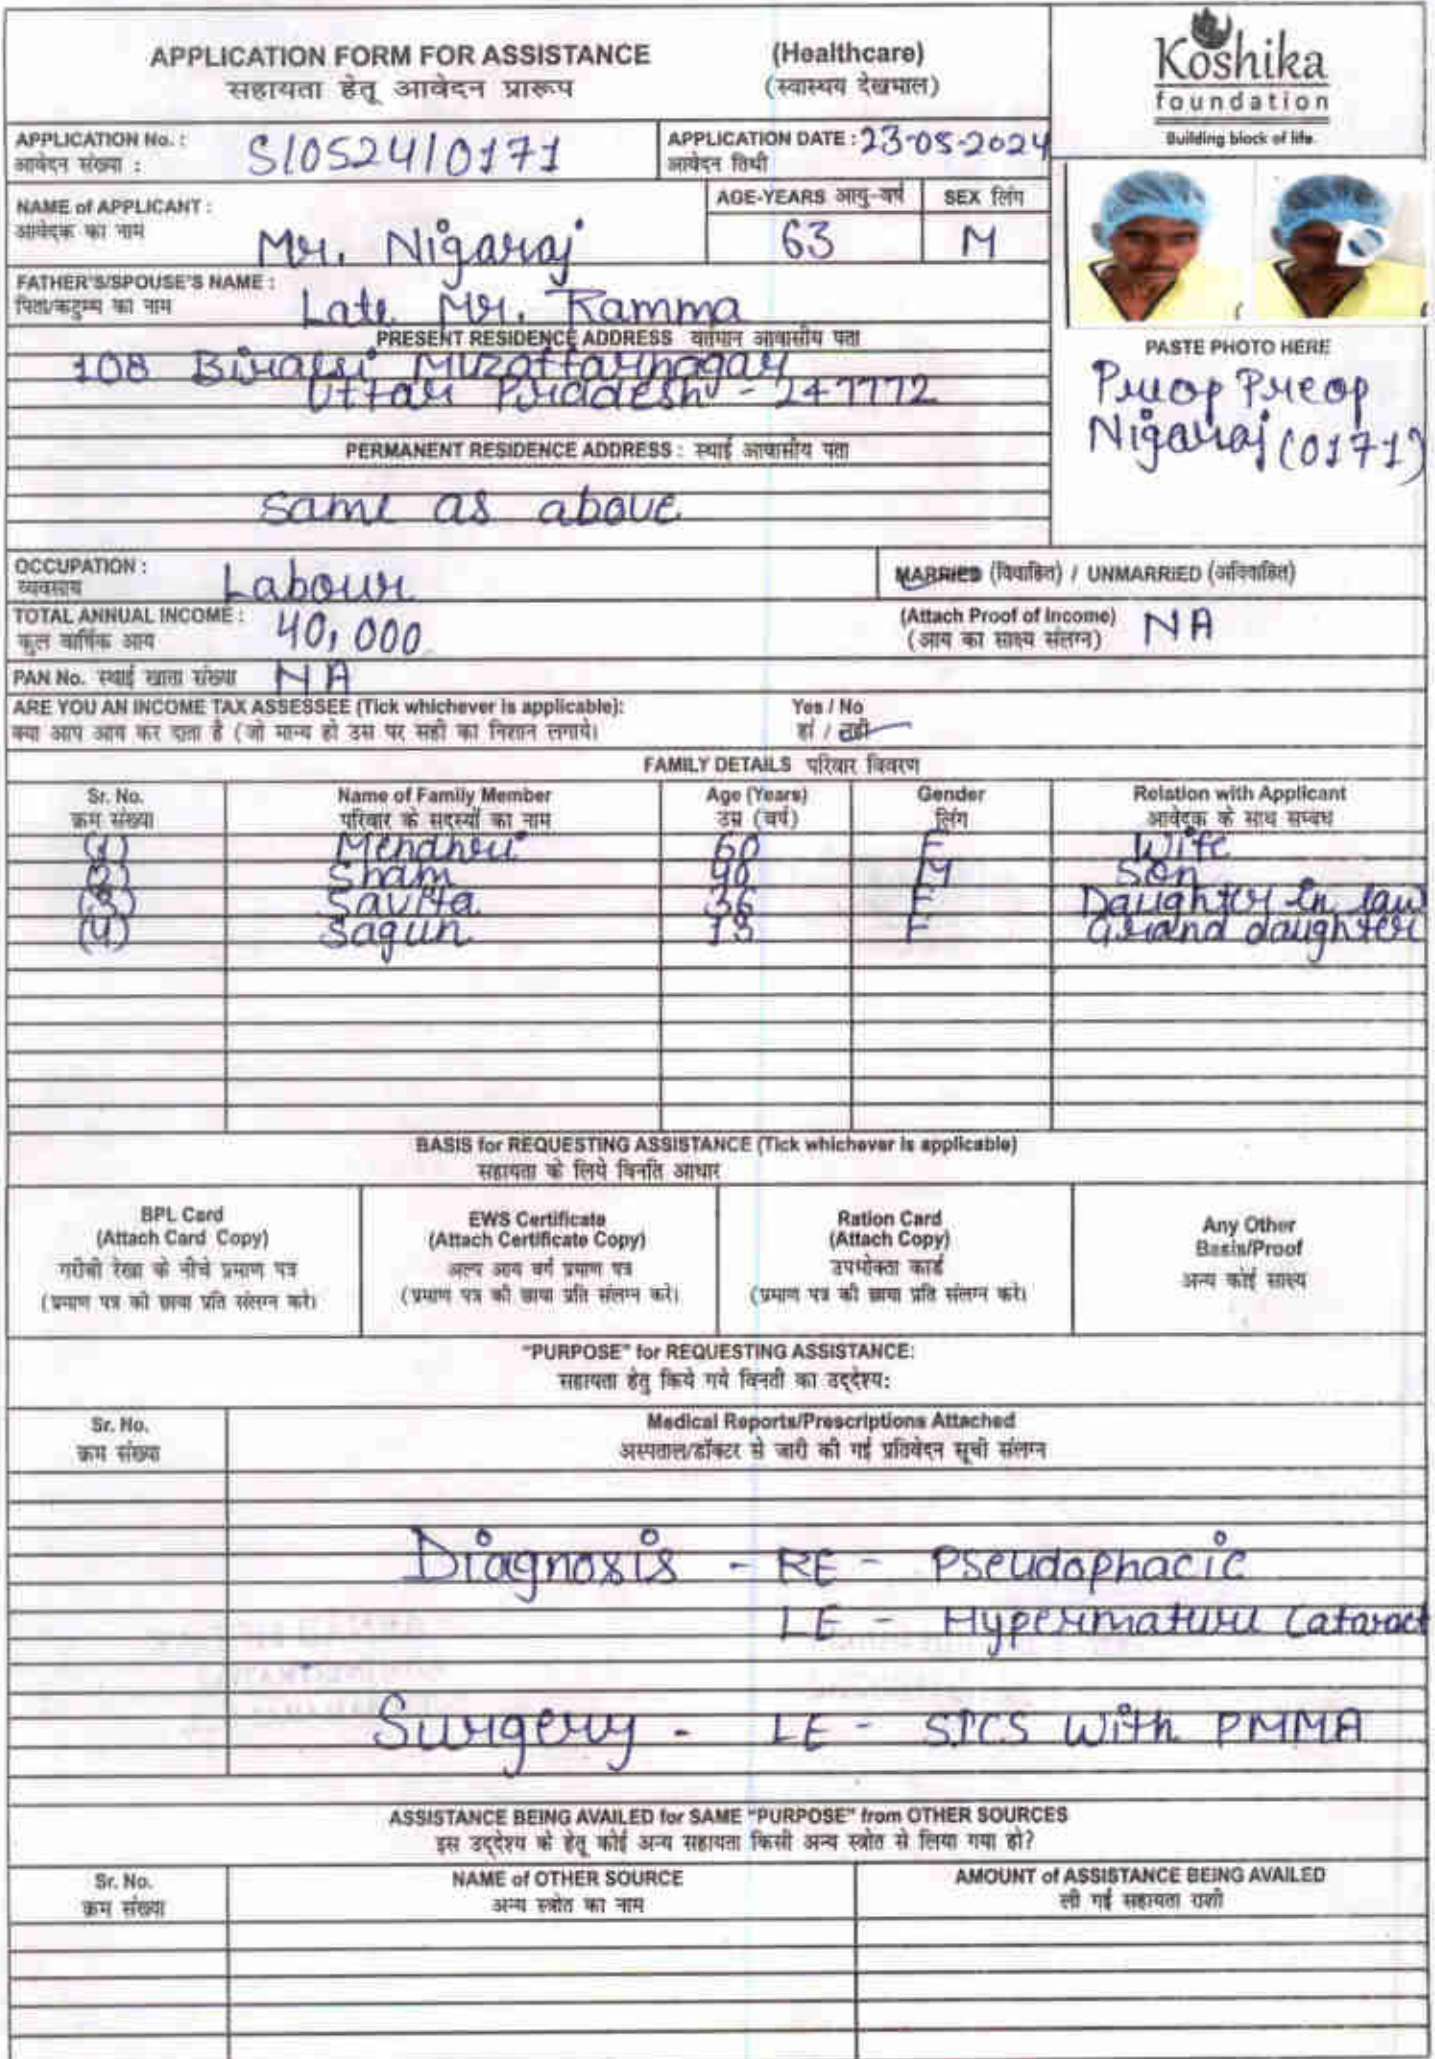 APPLICATION FORM FOR ASSISTANCE (Healthcare)
सहायता हेतू आवेदन प्रारूप (स्वास्थय देखभाल)
Koshika
foundation
Building block of life.
APPLICATION No. : S/0524/0171
आवेदन संख्या :
APPLICATION DATE : 23-05-2024
आवेदन तिथी
NAME of APPLICANT : Mr. Nigaraj
आवेदक का नाम
AGE-YEARS आयु-वर्ष 63
SEX लिंग M
FATHER'S/SPOUSE'S NAME : Late Mr. Ramma
पिता/कटुम्ब का नाम
PRESENT RESIDENCE ADDRESS वर्तमान आवासीय पता
108 Biralsi Muzaffarnagar
Uttar Pradesh - 247772
PASTE PHOTO HERE
Preop Preop
Nigaraj (0171)
PERMANENT RESIDENCE ADDRESS : स्थाई आवासीय पता
same as above
OCCUPATION : Labour
व्यवसाय
MARRIED (विवाहित) / UNMARRIED (अविवाहित)
TOTAL ANNUAL INCOME : 40,000
कुल वार्षिक आय
(Attach Proof of Income) NA
(आय का साक्ष्य संलग्न)
PAN No. स्थाई खाता संख्या NA
ARE YOU AN INCOME TAX ASSESSEE (Tick whichever is applicable): Yes / No
क्या आप आय कर दाता है (जो मान्य हो उस पर सही का निशान लगाये। हां / नही
FAMILY DETAILS परिवार विवरण
Sr. No. Name of Family Member Age (Years) Gender Relation with Applicant
क्रम संख्या परिवार के सदस्यों का नाम उम्र (वर्ष) लिंग आवेदक के साथ सम्बध
(1) Mendhri 60 F Wife
(2) Sham 40 M Son
(3) Savita 36 F Daughter in law
(4) Sagun 13 F Grand daughter
BASIS for REQUESTING ASSISTANCE (Tick whichever is applicable)
सहायता के लिये विनति आधार
BPL Card
(Attach Card Copy)
गरीबी रेखा के नीचे प्रमाण पत्र
(प्रमाण पत्र की छाया प्रति संलग्न करे।
EWS Certificate
(Attach Certificate Copy)
अल्प आय वर्ग प्रमाण पत्र
(प्रमाण पत्र की छाया प्रति संलग्न करे।
Ration Card
(Attach Copy)
उपभोक्ता कार्ड
(प्रमाण पत्र की छाया प्रति संलग्न करे।
Any Other
Basis/Proof
अन्य कोई साक्ष्य
"PURPOSE" for REQUESTING ASSISTANCE:
सहायता हेतु किये गये विनती का उद्देश्य:
Sr. No. Medical Reports/Prescriptions Attached
क्रम संख्या अस्पताल/डॉक्टर से जारी की गई प्रतिवेदन सूची संलग्न
Diagnosis - RE - Pseudophacic
LE - Hypermature Cataract
Surgery - LE - SICS with PMMA
ASSISTANCE BEING AVAILED for SAME "PURPOSE" from OTHER SOURCES
इस उद्देश्य के हेतू कोई अन्य सहायता किसी अन्य स्त्रोत से लिया गया हो?
Sr. No. NAME of OTHER SOURCE AMOUNT of ASSISTANCE BEING AVAILED
क्रम संख्या अन्य स्त्रोत का नाम ली गई सहायता राशी